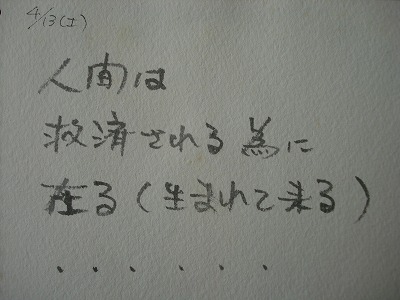 4/13(土)
人間は
救済される為に
在る(生まれて来る)
・・・・・・